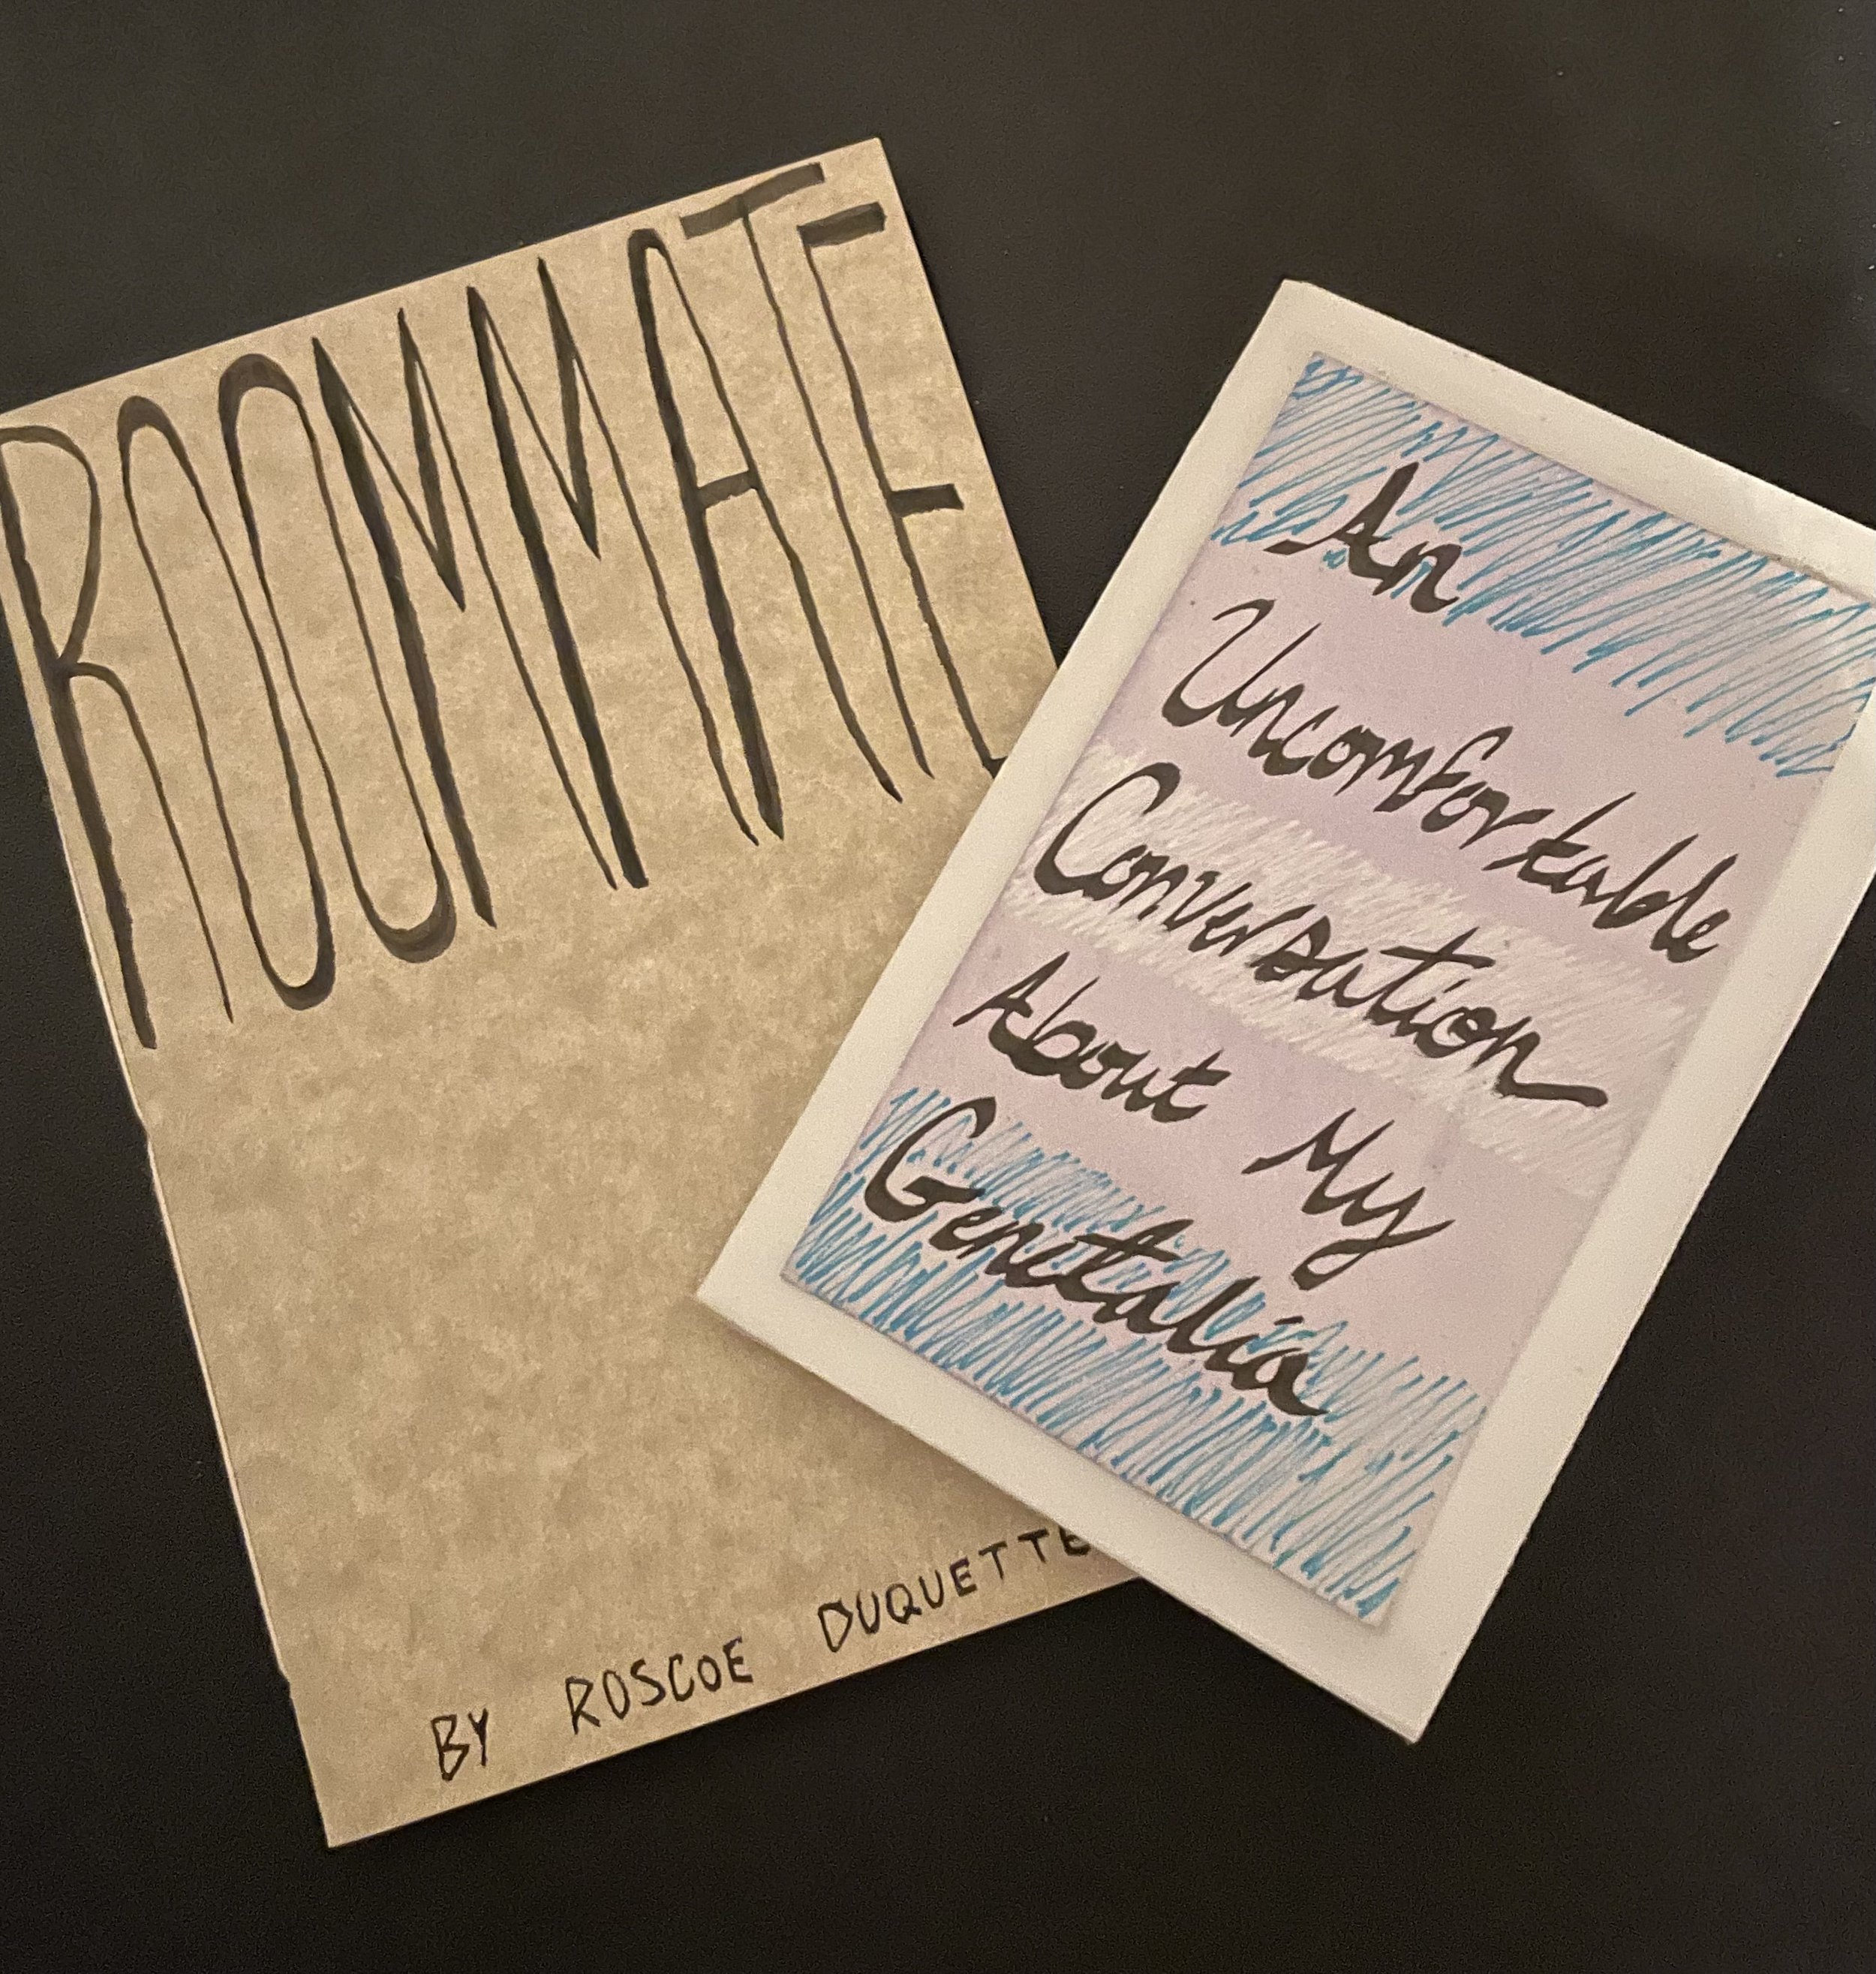 ROOMMATE
BY ROSCOE DUQUETTE
An
Uncomfortable
Conversation
About My
Genitalia